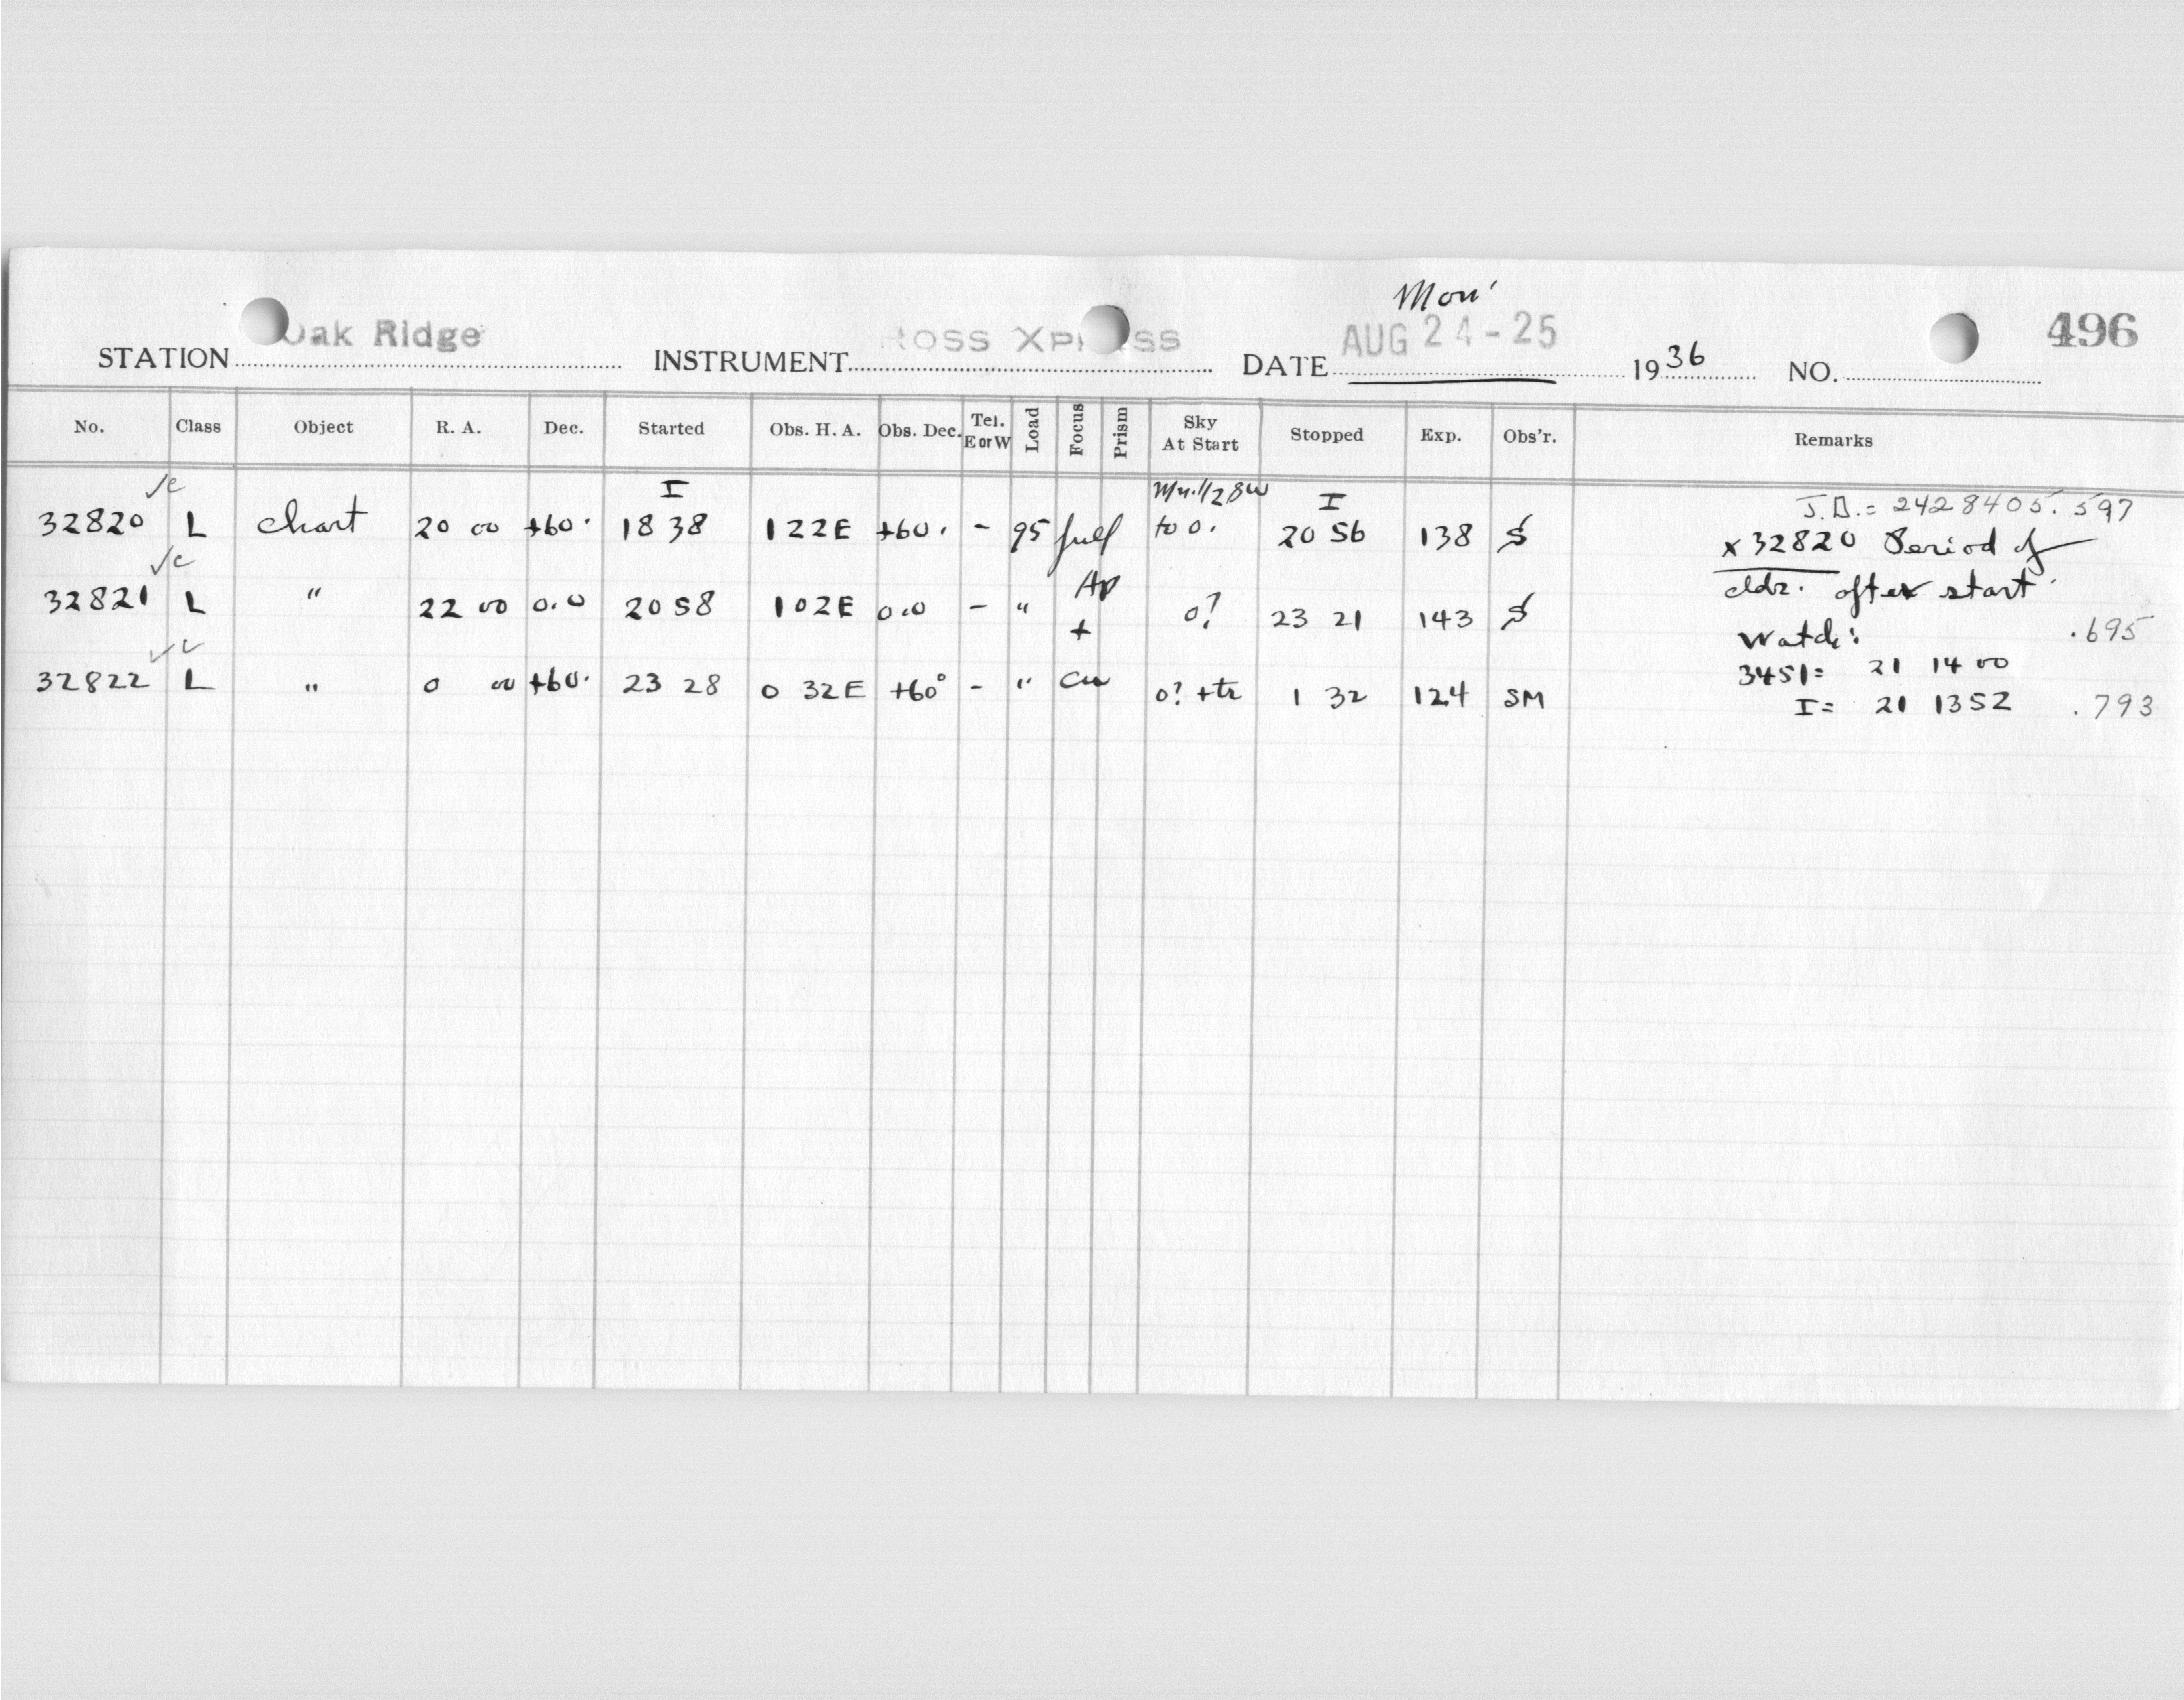 Mon'
STATION Oak Ridge INSTRUMENT Ross Xpress DATE AUG 24-25 1936 NO. 496
No. Class Object R. A. Dec. Started Obs. H. A. Obs. Dec. Tel. E or W Load Focus Prism Sky At Start Stopped Exp. Obs'r. Remarks
I I J.D.= 2428405.597
32820 L chart 20 00 +60° 18 38 1 22E +60° - 95 full to 0. 20 56 138 S x 32820 Period of
cldz. after start
32821 L " 22 00 0.0 20 58 1 02E 0.0 - " Ap 0? 23 21 143 S Watch: .695
+ 3451= 21 14 00
32822 L " 0 00 +60° 23 28 0 32E +60° - " cu 0? +tr 1 32 124 SM I= 21 13 52 .793